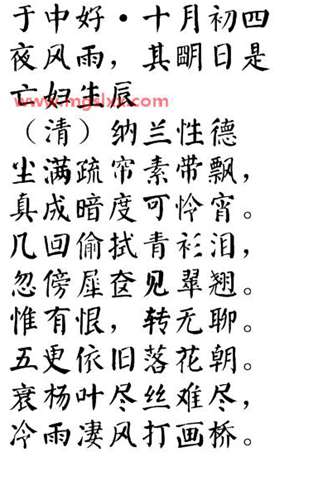 于中好·十月初四
夜风雨，其明日是
亡妇生辰
（清）纳兰性德
尘满疏帘素带飘，
真成暗度可怜宵。
几回偷拭青衫泪，
忽傍犀奁见翠翘。
惟有恨，转无聊。
五更依旧落花朝。
衰杨叶尽丝难尽，
冷雨凄风打画桥。